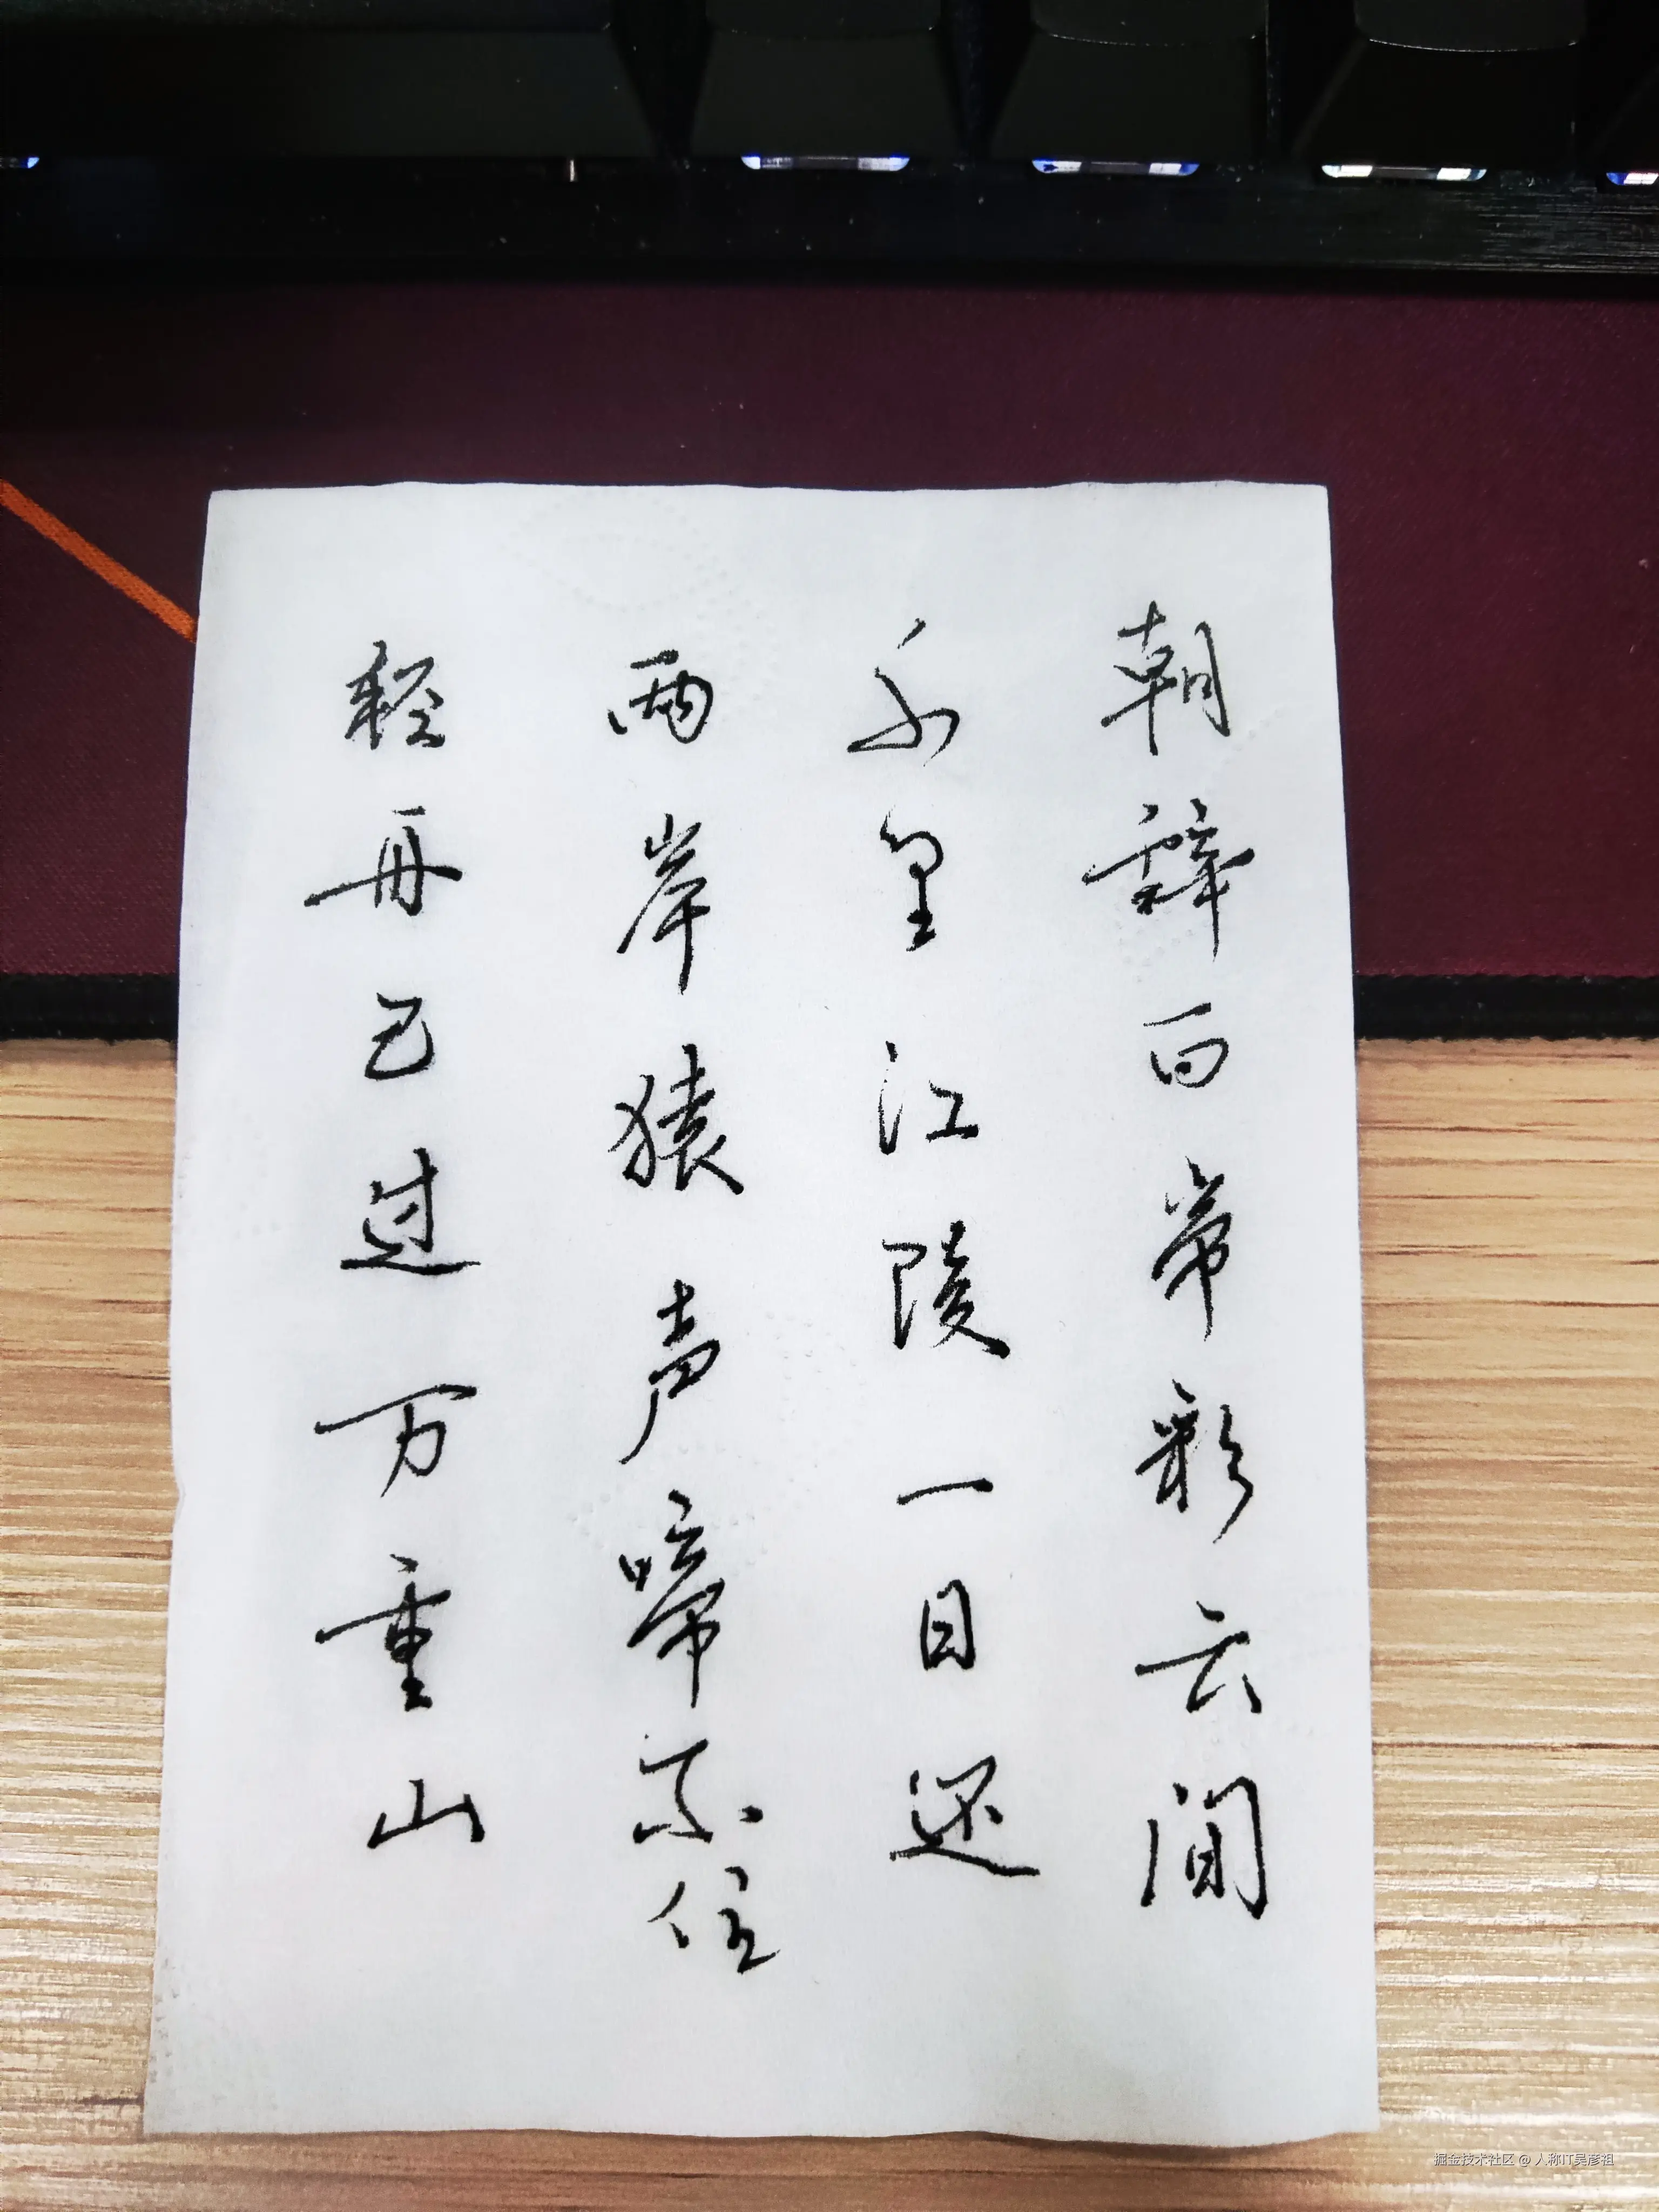 朝辞白帝彩云间
千里江陵一日还
两岸猿声啼不住
轻舟已过万重山
掘金技术社区 @ 人称IT吴彦祖